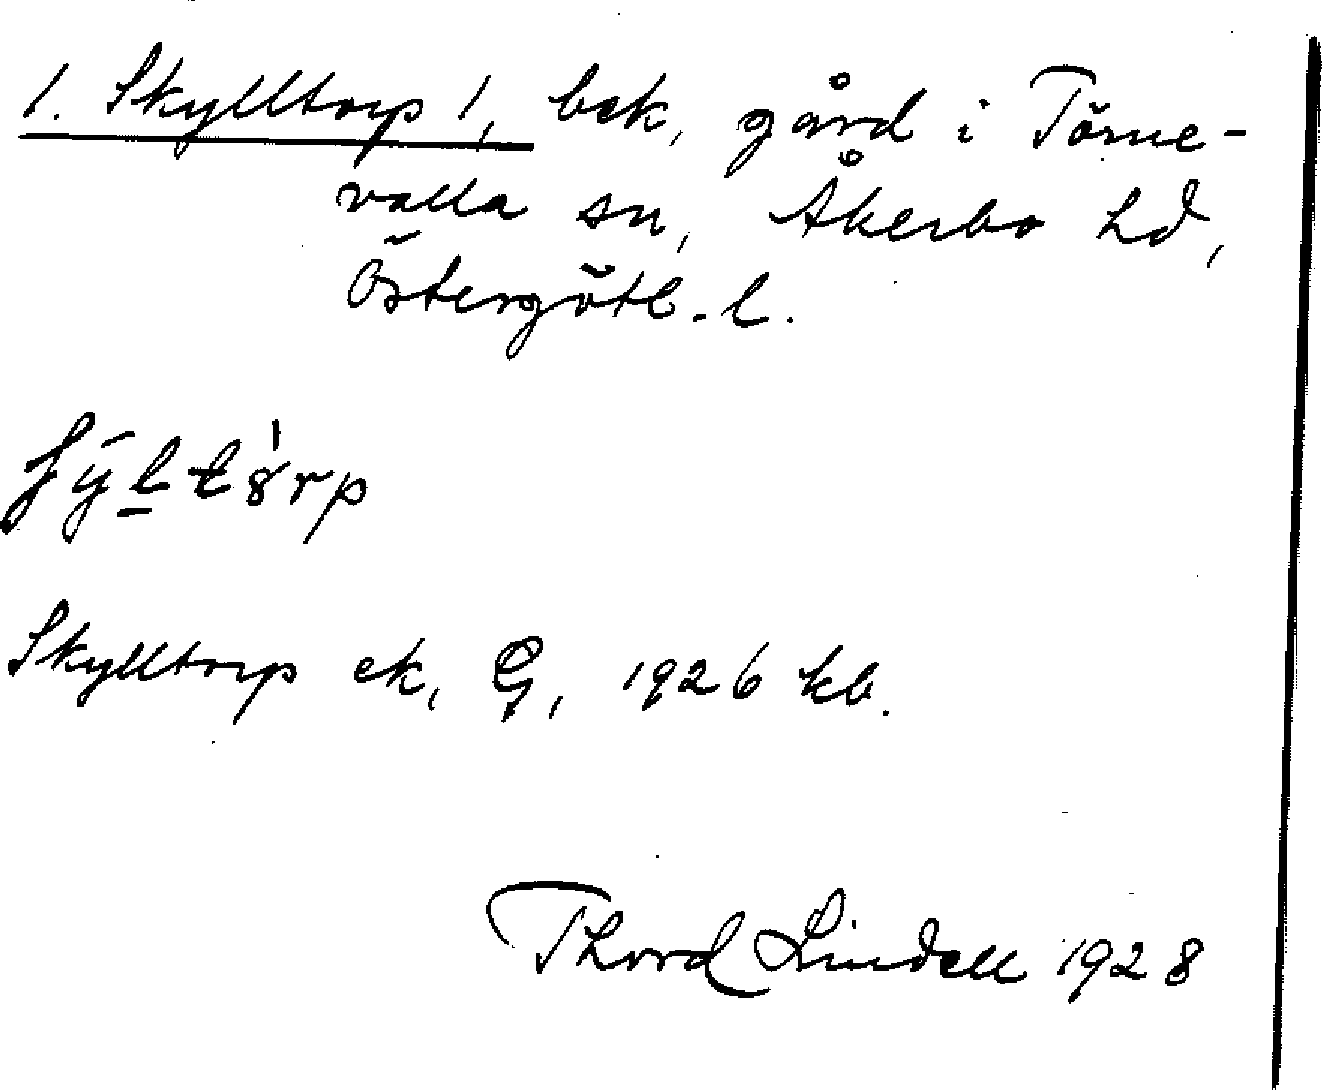 1. Skylltorp 1, bek, gård i Törne-
valla sn, Åkerbo hd,
Östergötl. l.
Skylltorp ek, G, 1926 kb.
Thord Lindell 1928